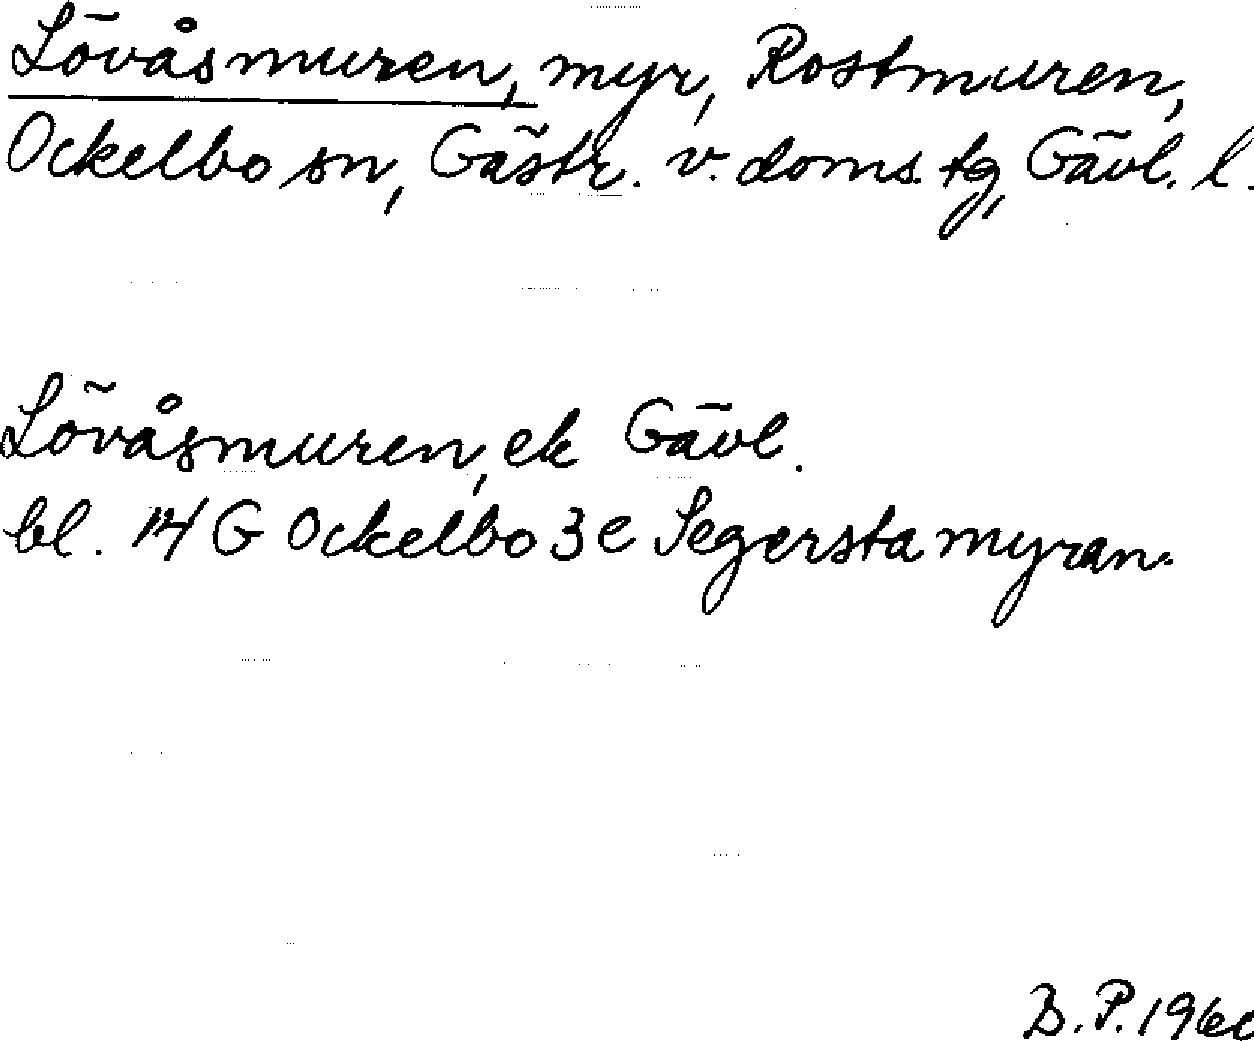 Lövåsmuren, myr, Rostmuren,
Ockelbo sn, Gästr. v. doms. tg, Gävl. l.
Lövåsmuren, ek Gävl.
bl. 14 G Ockelbo 3 e Segerstamyran.
B. P.